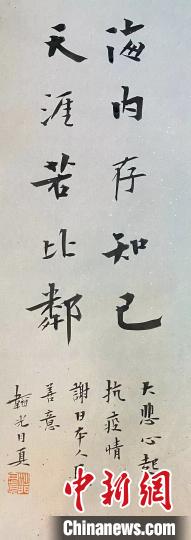 海内存知己
天涯若比鄰
大悲心起
抗疫情
謝日本人民
善意
韜光日真
中新網
Chinanews.com